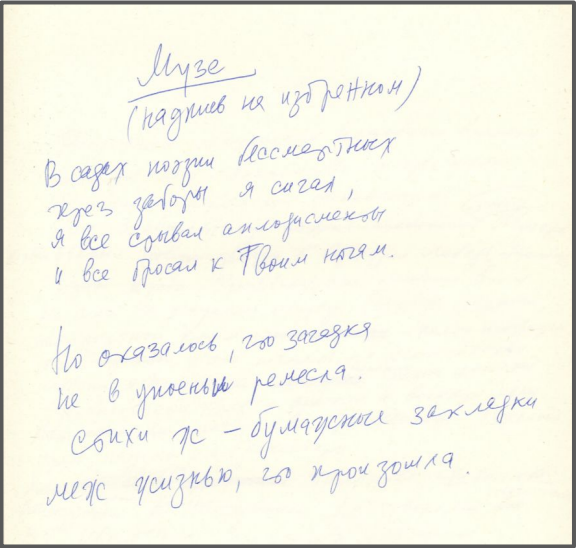 Музе
(надпись на избранном)
В садах поэзии бессмертных
через заборы я сигал,
я все срывал аплодисменты
и все бросал к Твоим ногам.
Но оказалось, что загадка
не в упоеньи ремесла.
Стихи ж – бумажные закладки
меж жизнью, что произошла.